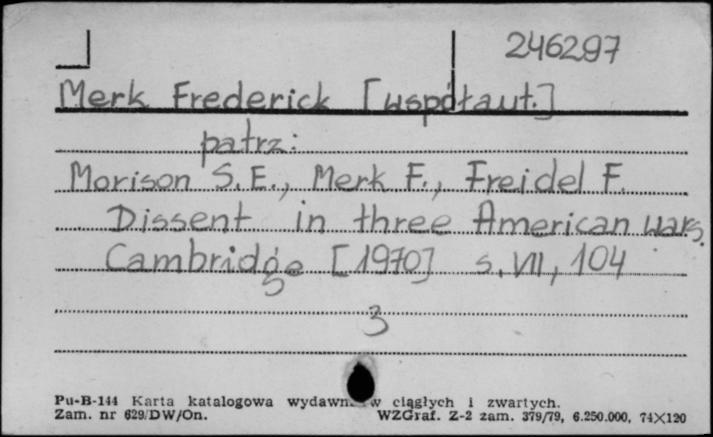 246297
Merk Frederick [współaut.]
patrz:
Morison S.E., Merk F., Freidel F.
Dissent in three American wars.
Cambridge [1970] s. VII, 104
3
Pu-B-144 Karta katalogowa wydawn. w ciągłych i zwartych.
Zam. nr 629/DW/On. WZGraf. Z-2 zam. 379/79, 6.250.000, 74X120